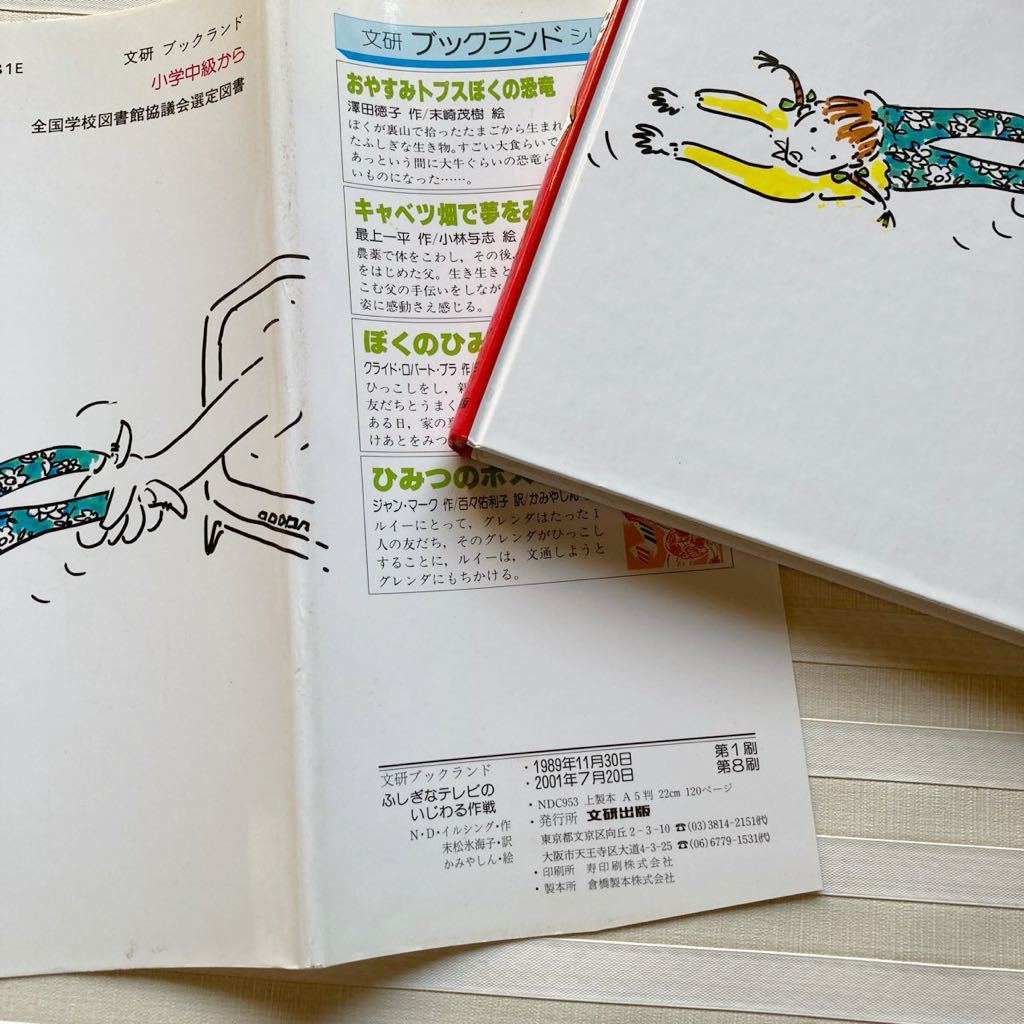 31E
文研 ブックランド
小学中級から
全国学校図書館協議会選定図書
文研 ブックランド シリ
おやすみトプスぼくの恐竜
澤田徳子 作/末崎茂樹 絵
ぼくが裏山で拾ったたまごから生まれ
たふしぎな生き物。すごい大食らいで
あっという間に大牛ぐらいの恐竜ら
いものになった……。
キャベツ畑で夢をみ
最上一平 作/小林与志 絵
農薬で体をこわし，その後，
をはじめた父。生き生きと
こむ父の手伝いをしなが
姿に感動さえ感じる。
ぼくのひみ
クライド・ロバート・ブラ 作
ひっこしをし，新
友だちとうまく
ある日，家の
けあとをみつ
ひみつのポス
ジャン・マーク 作/百々佑利子 訳/かみやしん
ルイーにとって，グレンダはたった1
人の友だち，そのグレンダがひっこし
することに，ルイーは，文通しようと
グレンダにもちかける。
文研ブックランド
ふしぎなテレビの
いじわる作戦
N・D・イルシング・作
末松氷海子・訳
かみやしん・絵
・1989年11月30日 第1刷
・2001年7月20日 第8刷
・NDC953 上製本 A5判 22cm 120ページ
・発行所 文研出版
東京都文京区向丘2-3-10 ☎(03)3814-2151(代)
大阪市天王寺区大道4-3-25 ☎(06)6779-1531(代)
・印刷所 寿印刷株式会社
・製本所 倉橋製本株式会社